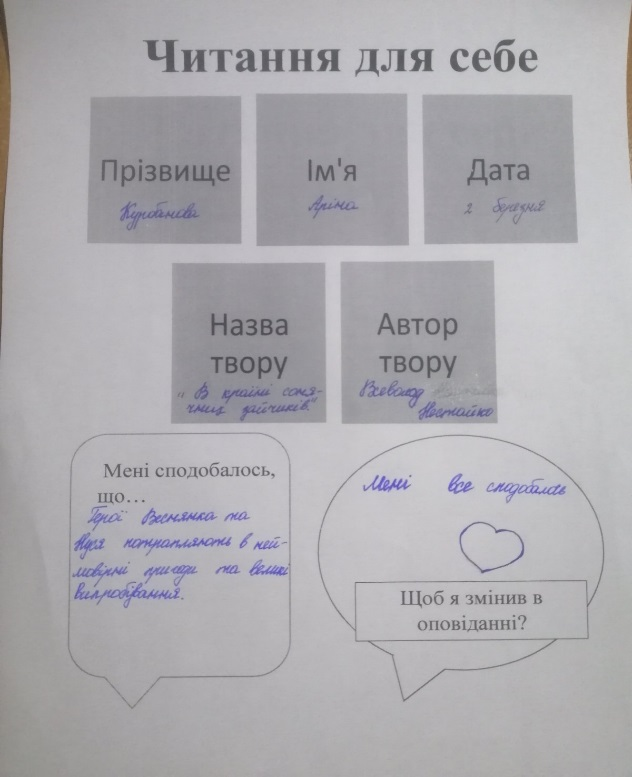 Читання для себе
Прізвище
Курбанова
Ім'я
Аріна
Дата
2 березня
Назва
твору
"В країні соня-
чних зайчиків"
Автор
твору
Всеволод
Нестайко
Мені сподобалось,
що...
Герої Веснянка та
потрапляють в ней-
мовірні пригоди та великі
випробівання.
Мені все сподобалось
Щоб я змінив в
оповіданні?